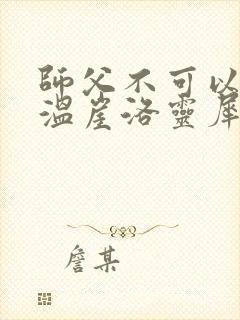 師父不可以
溫崖洛靈犀
詹某